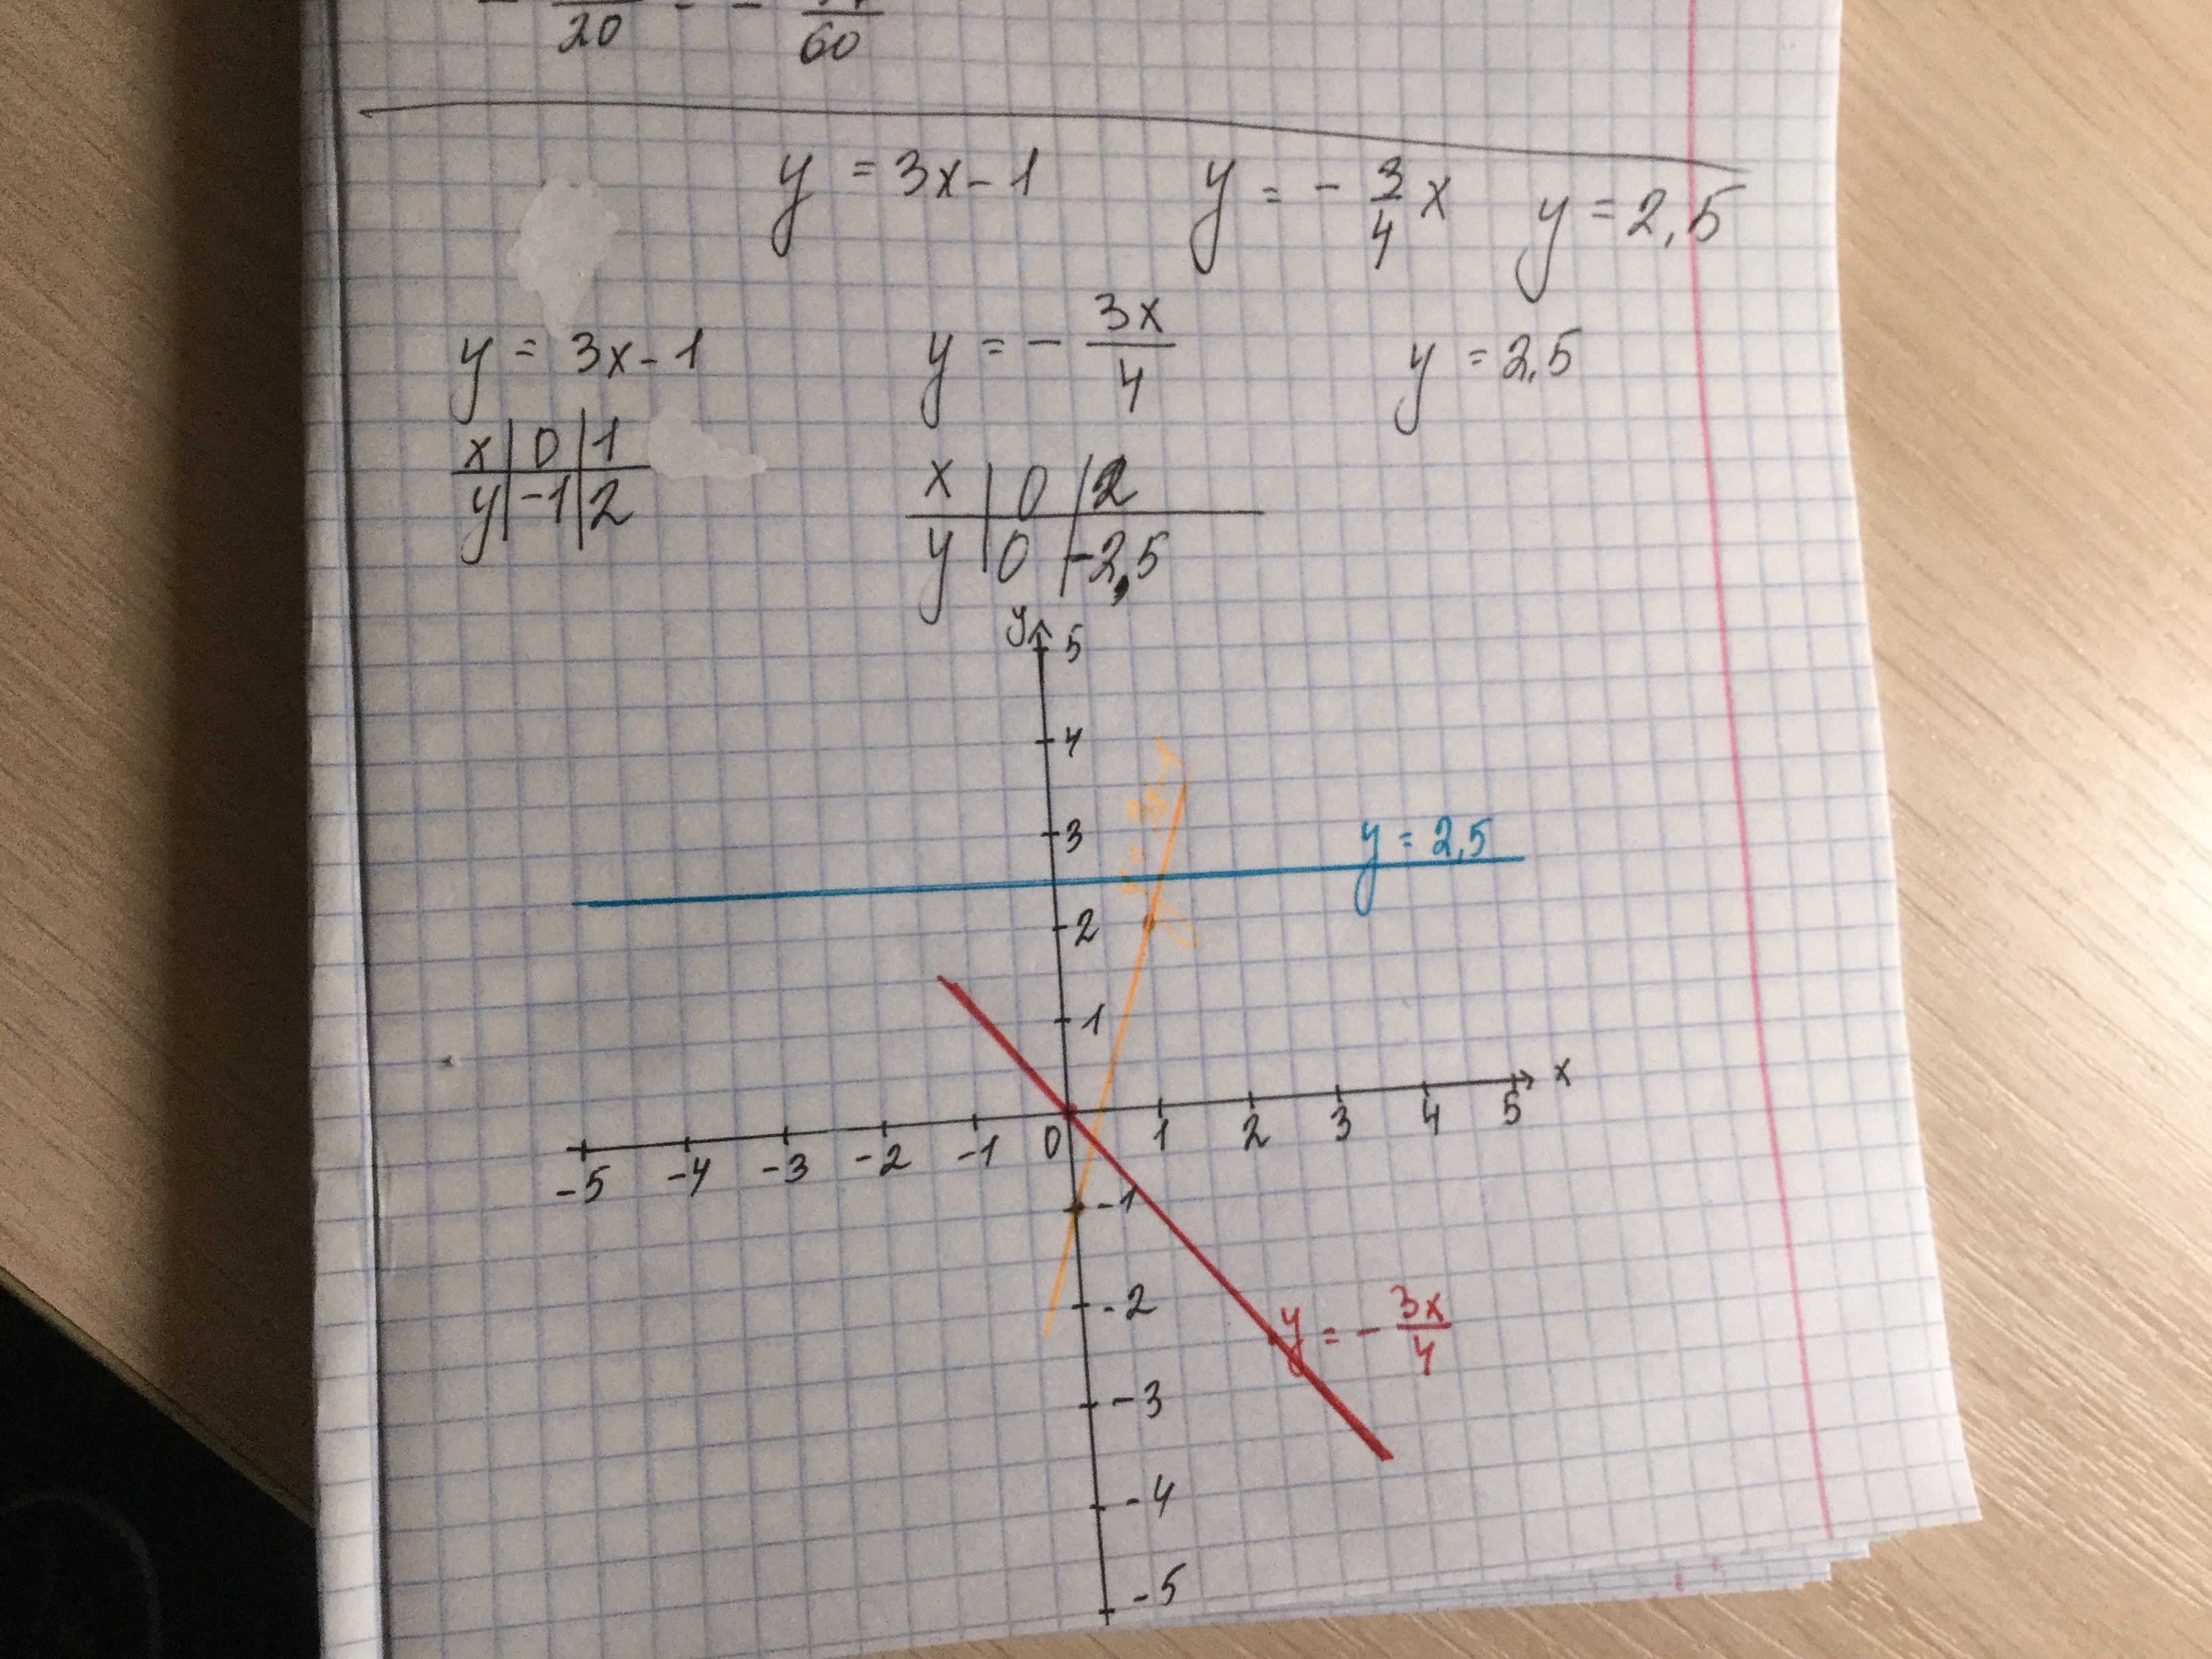 - /20 - - /60
y = 3x - 1 y = - 3/4 x y = 2,5
y = 3x - 1 y = - 3x/4 y = 2,5
x | 0 | 1
y | -1 | 2
x | 0 | 2
y | 0 | -2,5
y 5
4
y = 3x - 1
3
y = 2,5
2
1
x
-5 -4 -3 -2 -1 0 1 2 3 4 5
-1
-2
y = - 3x/4
-3
-4
-5